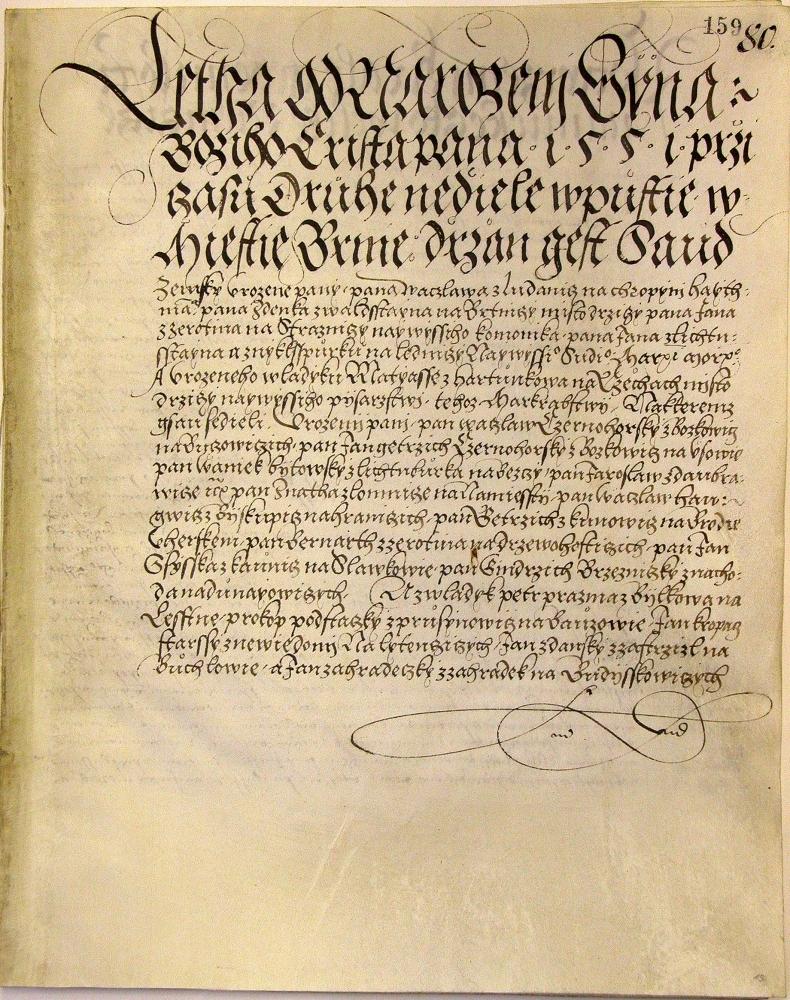 159 80.
Letha od Narozenij Syna
Boziho Crista pana · 1 · 5 · 5 · 1 · przi
czasu Druhe nediele w pustie w
Miestie Brnie drzan gest Saud
Zemsky Urozene pany · pana waczlawa z ludanicz na chropyni hayth
ma: pana zdenka z waldsstayna na Brtniczy misto drziczy pana Jana
z zerotina na Strazniczy naywyssiho komornika · pana Jana z lichtn
sstayna a z nyklsspurku na ledniczy Naywyssi° Sudi°
A Urozeneho wladyku Matyasse z hartunkowa na Rzechach misto
drziczy naywyssiho pysarzstwi · tehoz Markrabstwij · Na kteremz
gsau sediely · Urozeni pani · pan waczlaw Czernohorsky z Bozkowicz
na Buczowiczich · pan Jan getrzich Czernohorsky z Bozkowicz na Usowie
pan waniek bytowsky z lichtnburka na beczy · pan Jaroslaw z daubra
wicze pan znatha z lomnicze na Namiessti · pan waczlaw haw
gwicz z byskupicz na hraniczich · pan Petrzich z kunowicz na Brodie
Uherskem · pan bernarth z zerotina na drzewohosticzich · pan Jan
Ssysska z kaunicz na Slawkowie · pan Gindrzich Brzezniczky z nacho
da na dunayowiczych · A z wladyk petr prazma z bylkowa na
Lesstne · prokop podstaczky z prusynowicz na bauzowie · Jan kropacz
starssy z newiedomij Na lytencziczych · Jan zdansky z zastrzizl na
Buchlowie · a Jan zahradeczky z zahradek na Budysskowiczych